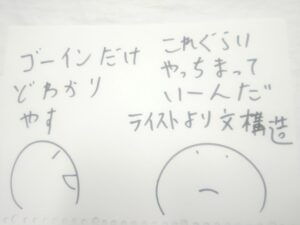 ゴーインだけ
どわかり
やす
これぐらい
やっちまって
いーんだ
ライストより文構造